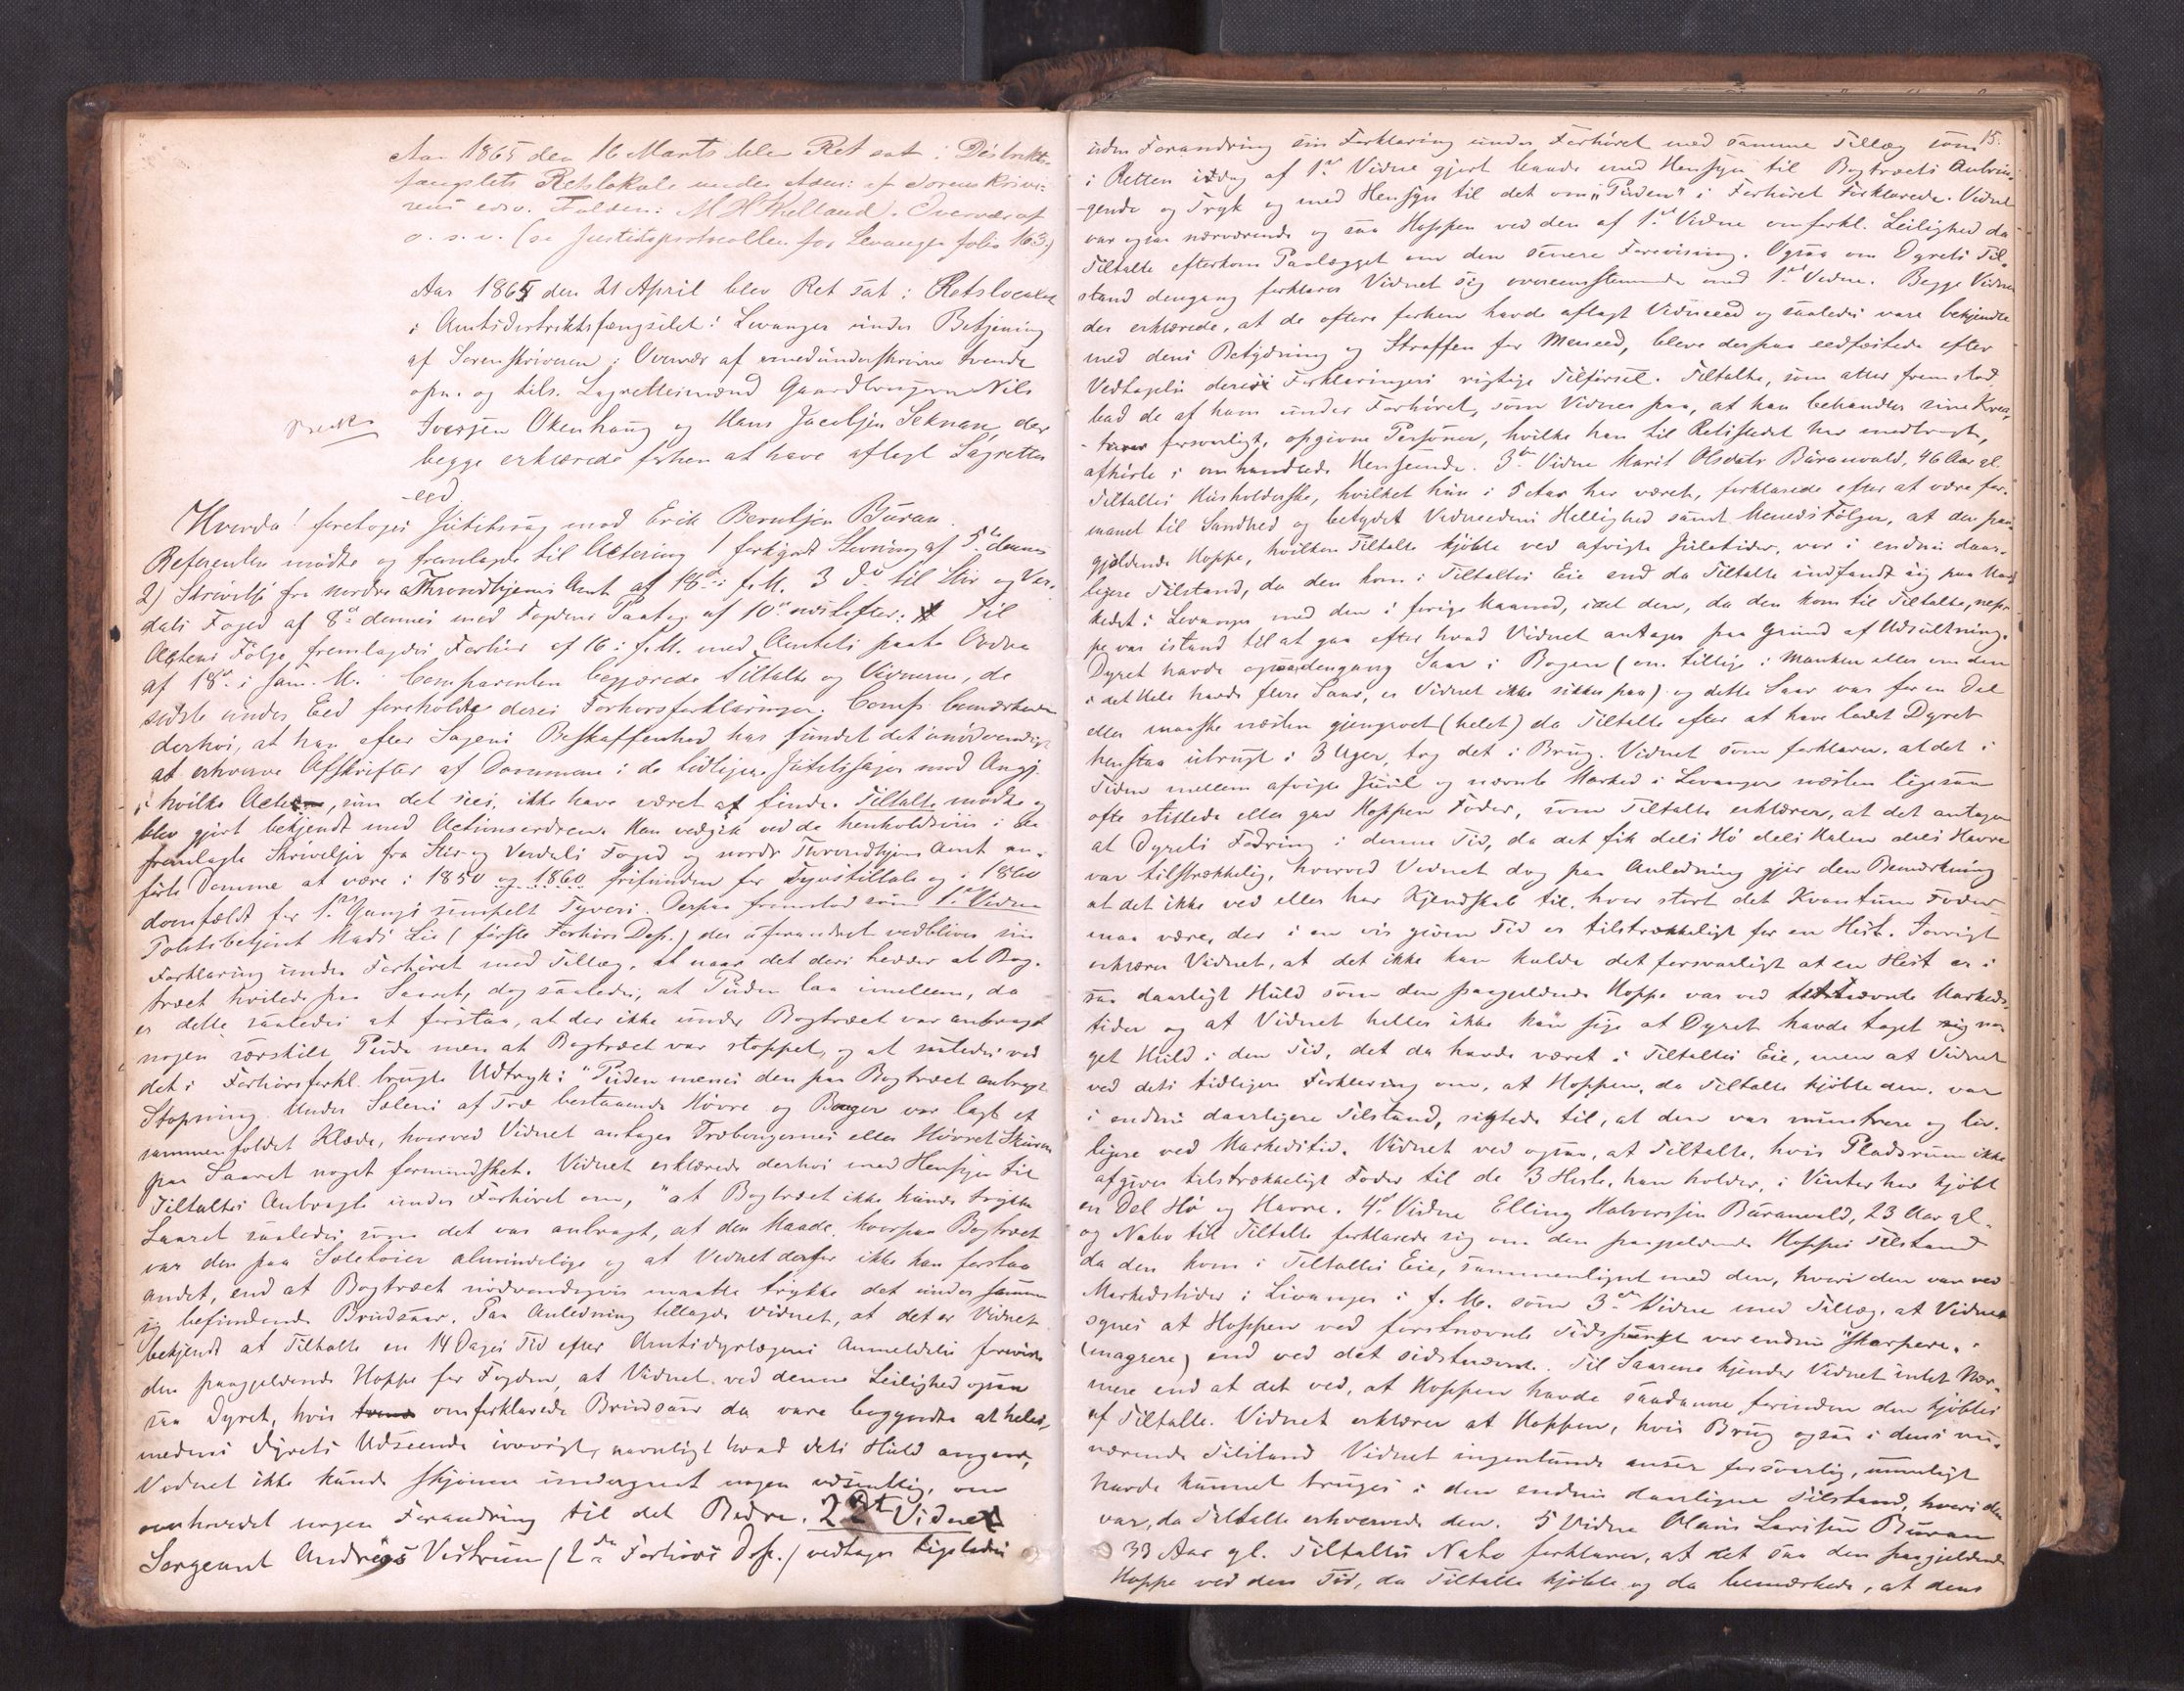 Aar 1865 den 16 Marts blev Ret sat i Distrikts-
fængslets Retslokale under Adm: af Sorenskrive-
rens edsv. Fuldm: M H Kielland. Overvær af
o. s. v. (se Justitsprotocollen for Levanger folio 163.)
Aar 1865 den 21 April blev Ret sat i Retslocalet
i Amtsdistriktsfængselet i Levanger under Betjening
af Sorenskriveren i Overvær af medunderskrivne tvende
opn. og tils. Lagrettesmænd Gaardbrugerne Nils
Iversen Okenhaug og Hans Jacobsen Seknan, der
begge erklærede forhen at have aflagt Lagrettes
-eed.
Hvorda! foretoges Justitssag mod Erik Berntsen Buran.
Referenten mødte og fremlagde til Actering 1 forkyndt Stevning af 5te dennes
2) Skrivelse fra nordre Throndhjems Amt af 18de i f. M. 3 do til Stør og Vær-
dals Foged af 8de dennes med Fogdens Paateg. af 10de næstefter. Til
Actens Følge fremlagdes Forhør af 16 i f. M. med Amtets paate Ordre
af 18de i sam. M. Comparenten begjærede Tiltalte og Vidnerne, de
sidste under Eed foreholdte deres Forhørsforklaringer. Comp. bemærkede
derhos, at han efter Sagens Beskaffenhed har fundet det unødvendigt
at erhverve Afskrifter af Dommene i de tidligere Justitssager mod Angj.
i hvilke Acterne, som det sees, ikke have været at finde. Tiltalte mødte og
blev gjort bekjendt med Actionsordren. Han vedgik ved de henholdsviis i de
fremlagte Skrivelser fra Stør og Verdals Foged og nordre Throndhjems Amt an-
førte Domme at være i 1850 og 1860 frifunden for Tyvstiltale og i 1860
domfældt for 1ste Gangs simpelt Tyveri. Derpaa fremstod som 1ste Vidne
Politibetjent Mads Lie (første Forhørs Dep.) der uforandret vedbliver sin
Forklaring under Forhøret med Tillæg, at naar det deri hedder at Bog-
træet hvilede paa Saaret, dog saaledes, at Puden laa imellem, da
er dette saaledes at forstaa, at der ikke under Bogtræet var anbragt
nogen særskilt Pude men at Bogtræet var stoppet, og at saaledes ved
det i Forhørsforkl. brugte Udtryk: "Puden" menes den paa Bogtræet anbragte
Stopning. Under Sælens af Træ bestaaende Hövre og Boger var lagt et
sammenfoldet Klæde, hvorved Vidnet antager Træbogernes eller Hövrets Skuren
paa Saaret noget formindsket. Vidnet erklærede derhos med Hensyn til
Tiltaltes Anbragte under Forhøret om, "at Bogtræet ikke kunde trykke
Saaret saaledes som det var anbragt, at den Maade, hvorpaa Bogtræet
var den paa Seletøier almindelige og at Vidnet derfor ikke kan forstaa
andet, end at Bogtræet nødvendigvis maatte trykke det under samme
sig befindende Brudsaar. Paa Anledning tillagde Vidnet, at det er Vidnet
bekjendt at Tiltalte en 14 Dages Tid efter Amtsdyrlægens Anmeldelse foreviste
den paagjeldende Hoppe for Fogden, at Vidnet ved denne Leilighed ogsaa
saa Dyret, hvis omforklarede Brudsaar da vare begyndte at heles,
medens Dyrets Udseende iøvrigt, navnligt hvad dets Huld angaar,
Vidnet ikke kunde skjønne undergaaet nogen væsentlig, om
overhovedet nogen Forandring til det Bedre. 2det Vidne
Sergeant Andreas Vistrum (2den Forhørs Dep.) vedtager ligeledes
15.
uden Forandring sin Forklaring under Forhøret med samme Tillæg som
i Retten idag af 1ste Vidne gjort baade med Hensyn til Bogtræets Anbrin-
gende og Tryk og med Hensyn til det om "Puden" i Forhøret Forklarede. Vidnet
var ogsaa nærværende og saa Hoppen ved den af 1ste Vidne omforkl. Leilighed da
Tiltalte efterkom Paalægget om den senere Forevisning. Ogsaa om Dyrets Til-
stand dengang forklarer Vidnet sig overeensstemmende med 1ste Vidne. Begge Vidner
der erklærede, at de oftere forhen havde aflagt Vidneeed og saaledes vare bekjendte
med dens Betydning og Straffen for Meneed, bleve derpaa eedfæstede efter
Vedtagelse deres Forklaringers rigtige Tilførsel. Tiltalte, som atter fremstod,
bad de af ham under Forhøret, som Vidner paa, at han behandler sine Krea-
turer forsvarligt, opgivne Personer, hvilke han til Retsstedet har medbragt,
afhørte i omhandlede Henseende. 3die Vidne Marit Olsdatr Buranvald, 46 Aar gl.
Tiltaltes Husholderske, hvilket hun i 5 Aar har været, forklarede efter at være for-
manet til Sandhed og betydet Vidneedens Hellighed samt Meneeds Følger, at den paa-
gjeldende Hoppe, hvilken Tiltalte kjøbte ved afvigte Juletider, var i endnu daar-
ligere Tilstand, da den kom i Tiltaltes Eie end da Tiltalte indfandt sig paa Mar-
kedet i Levanger med den i forrige Maaned, idet den, da den kom til Tiltalte, nep-
pe var istand til at gaa efter hvad Vidnet antager paa Grund af Udsultning.
Dyret havde ogsaa dengang Saar i Bogen (om tillige i Manken eller om den
i det Hele havde flere Saar, er Vidnet ikke sikker paa) og dette Saar var for en Del
eller maaske næsten gjengroet (helet) da Tiltalte efter at have ladet Dyret
henstaa ubrugt i 3 Uger, tog det i Brug. Vidnet som forklarer, at det i
Tiden mellem afvigte Juul og nævnte Marked i Levanger næsten ligesaa
ofte stillede eller gav Hoppen Foder, som Tiltalte erklærer, at det antager
at Dyrets Fodring i denne Tid, da det fik dels Hø dels Halm dels Havre
var tilstrækkelig, hvorved Vidnet dog paa Anledning gjør den Bemærkning
at det ikke ved eller har Kjendskab til, hvor stort det Kvantum Foder
maa være, der i en vis given Tid er tilstrækkeligt for en Hest. Iøvrigt
erklærer Vidnet, at det ikke kan kalde det forsvarligt at en Hest er i
saa daarligt Huld som den paagjeldende Hoppe var ved sidstnævnte Markeds-
tider og at Vidnet heller ikke kan sige at Dyret havde taget sig no-
get Huld i den Tid, det da havde været i Tiltaltes Eie, men at Vidnet
ved dets tidligere Forklaring om, at Hoppen, da Tiltalte kjøbte den, var
i endnu daarligere Tilstand, sigtede til, at den var muntrere og liv-
ligere ved Markedstid. Vidnet ved ogsaa, at Tiltalte, hvis Pladsrum ikke
afgiver tilstrækkeligt Foder til de 3 Heste, han holder, i Vinter har kjøbt
en Del Hø og Havre. 4de Vidne Elling Halvorsen Buranvald, 23 Aar gl.
og Nabo til Tiltalte forklarede sig om den paagjeldende Hoppes Tilstand
da den kom i Tiltaltes Eie, sammenlignet med den, hvori den var ved
Markedstider i Levanger i f. M. som 3die Vidne med Tillæg, at Vidnet
synes at Hoppen ved førstnævnte Tidspunkt var endnu "skarpere"
(magrere) end ved det sidstnævnte. Til Saarene kjender Vidnet intet Nær-
mere end at det ved, at Hoppen havde saadanne, førinden den kjøbtes
af Tiltalte. Vidnet erklærer at Hoppen, hvis Brug ogsaa i dens nu-
værende Tilstand Vidnet ingenlunde anser forsvarlig, umuligt
havde kunnet bruges i den endnu daarligere Tilstand, hvori den
var, da Tiltalte erhvervede den. 5 Vidne Olaus Larsen Buran
33 Aar gl. Tiltaltes Nabo forklarer, at det saa den paagjeldende
Hoppe ved den Tid, da Tiltalte kjøbte og da bemærkede, at dens